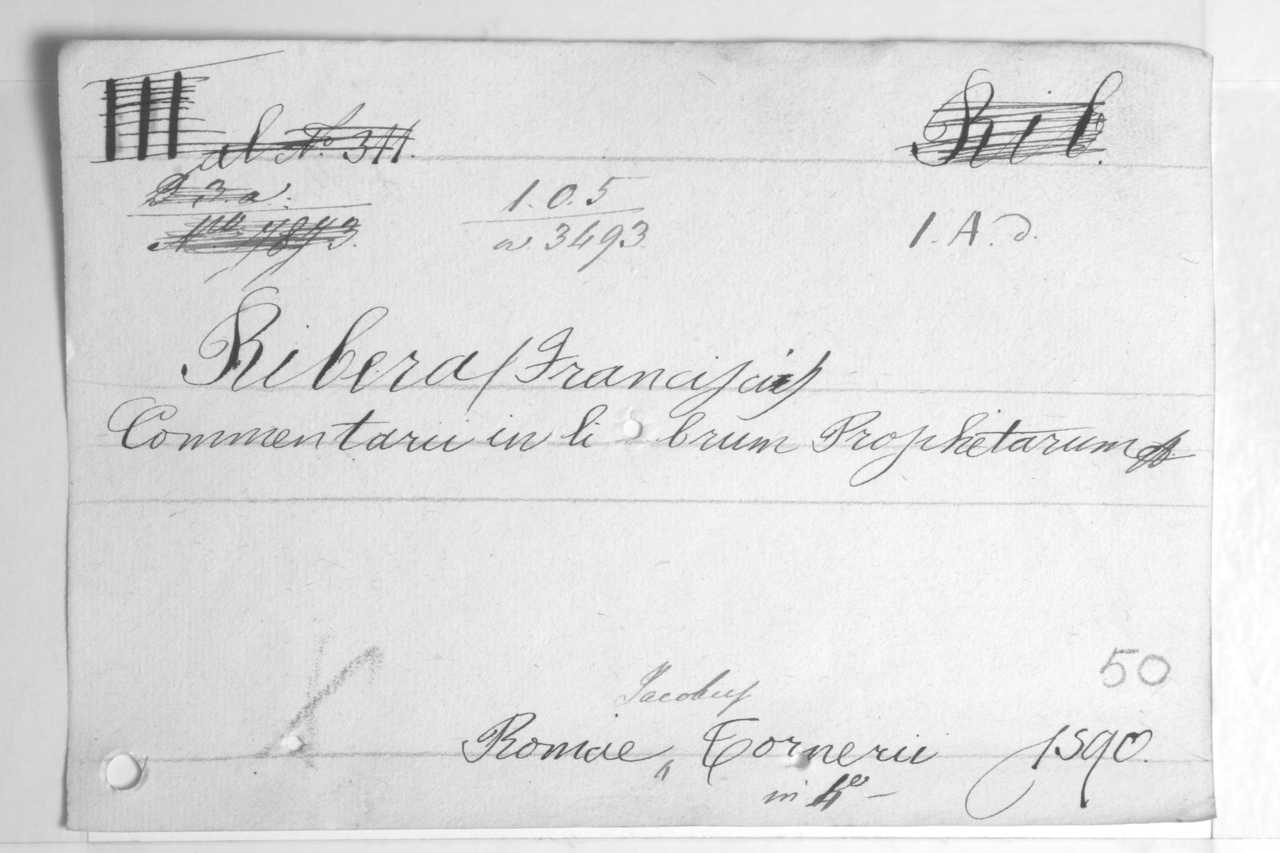 III al No. 311. Rib.
D. 3. a.
1. 0. 5
7873.
a. 3493
1. A. d.
Ribera (Francisci)
Commentarii in li brum Prophetarum
50
Jacobus
Romae, Tornerii 1590.
in 4o –